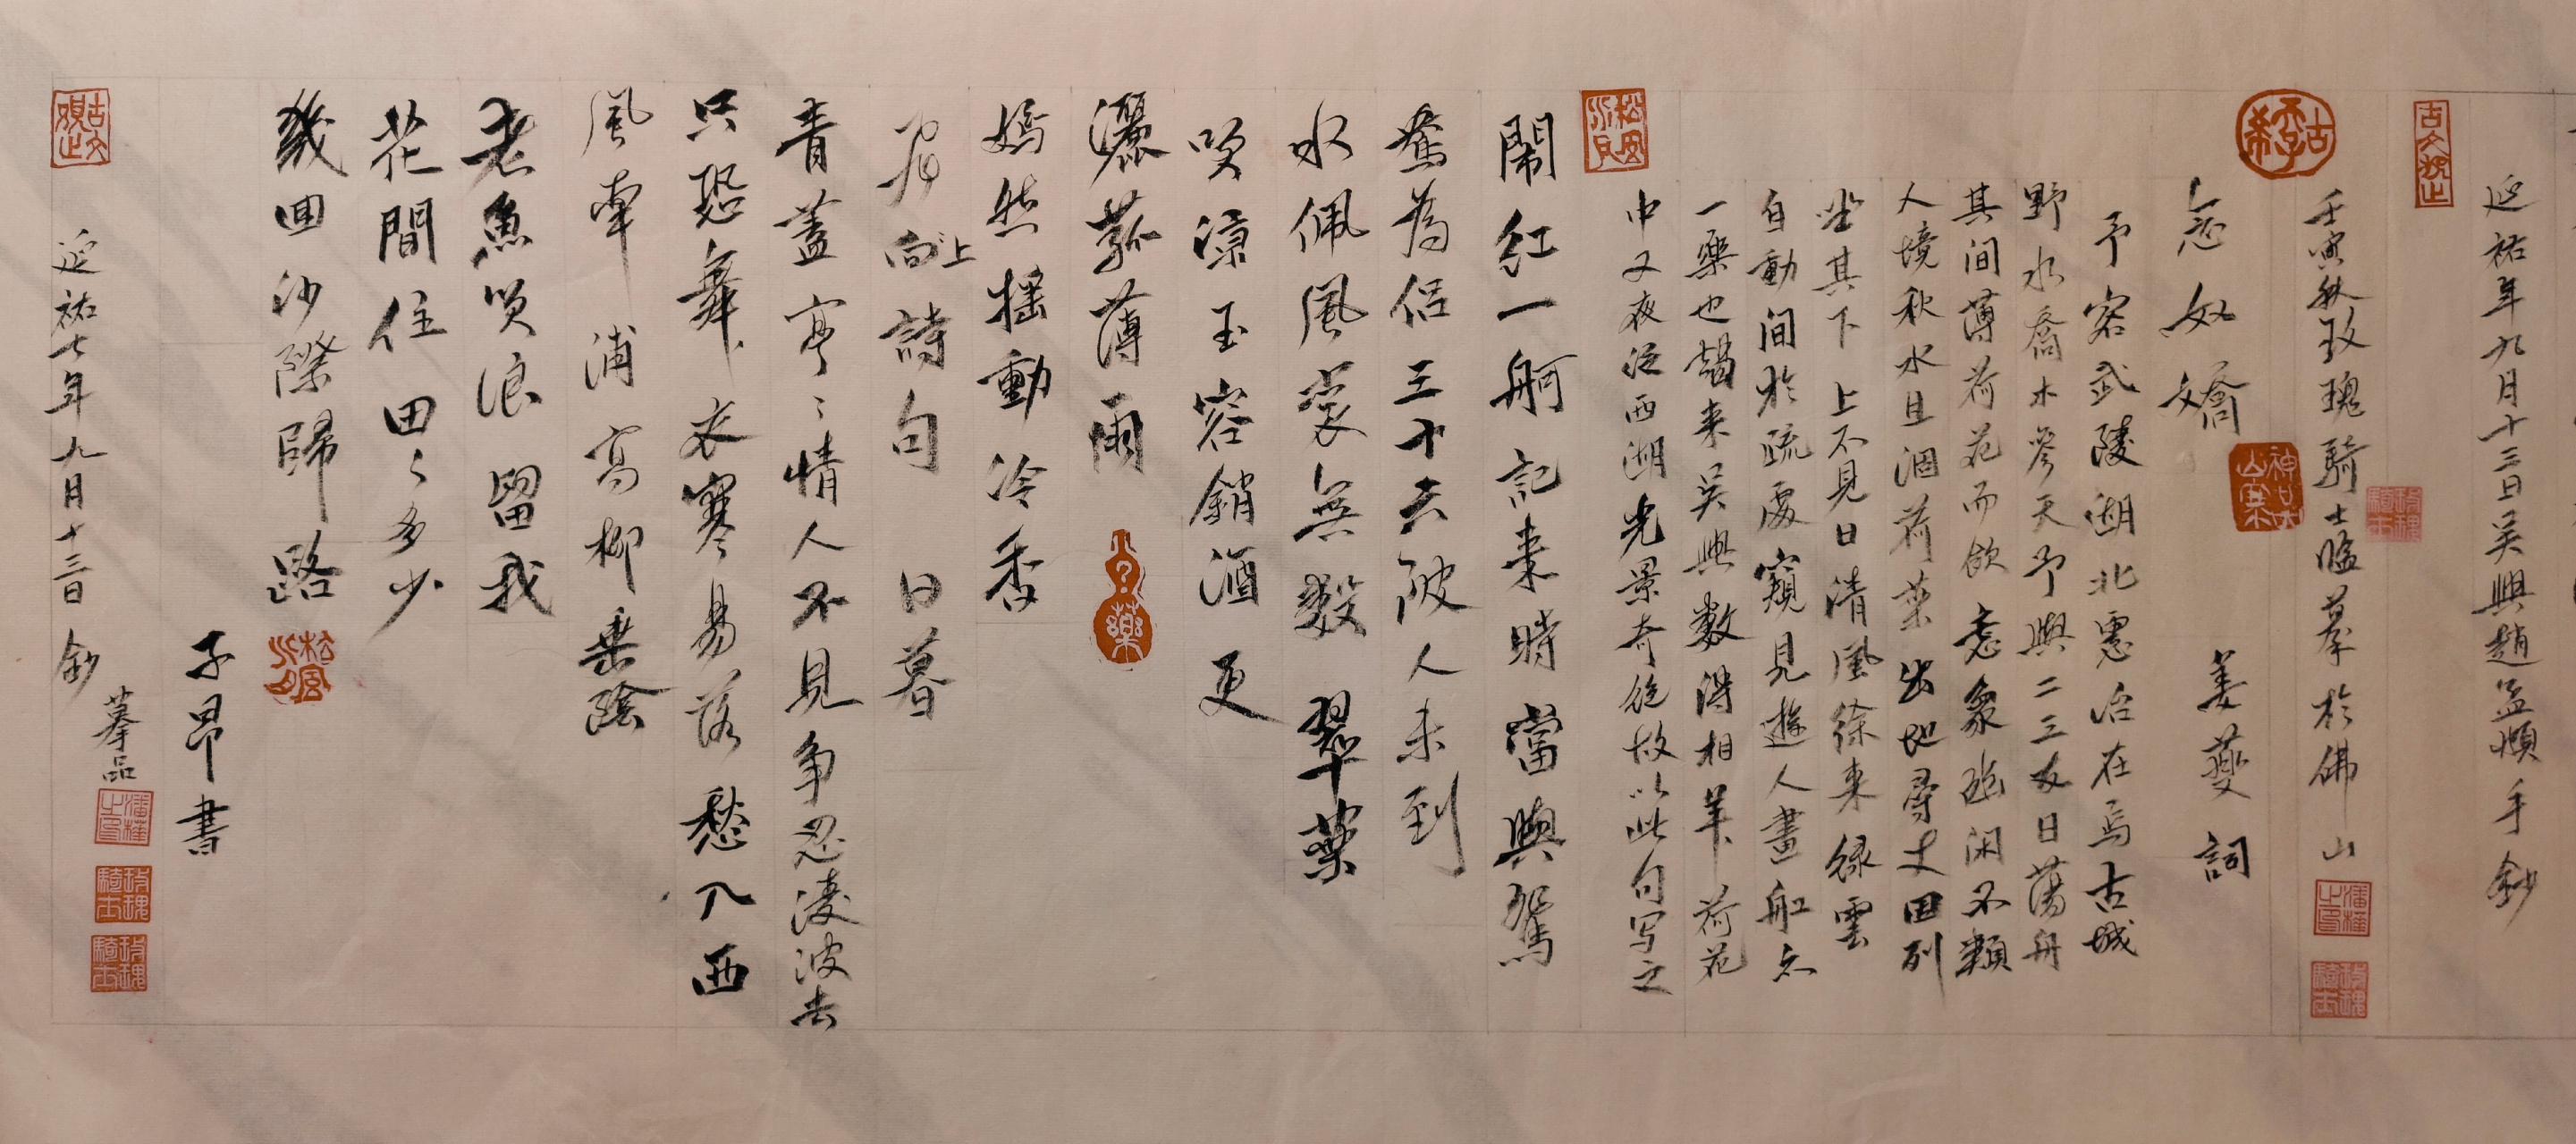 延祐年九月十三日吴興趙孟頫手鈔
古
壬寅秋玫瑰騎士臨摹於佛山
玫瑰騎士
玫瑰騎士
古希
念奴嬌 姜夔詞
予客武陵湖北憲治在焉古城
野水喬木參天予與二三友日蕩舟
其间薄荷花而飲意象幽闲不類
人境秋水且涸荷葉出地尋丈因列
坐其下上不見日清風徐来緑雲
自動间於疏處窺見遊人畫船亦
一樂也朅来吴興數得相羊荷花
中又夜泛西湖光景奇绝故以此句写之
鬧紅一舸記来時嘗與鴛
鴦為侣三十六陂人未到
水佩風裳無數翠葉
吹涼玉容銷酒更
灑菰薄雨
藥
嫣然摇動冷香
飛向上詩句日暮
青蓋亭〻情人不見争忍淩波去
只恐舞衣寒易落愁入西
風南浦高柳垂陰
老魚吹浪留我
花間住田〻多少
幾回沙際歸路
子昂書
延祐七年九月十三日鈔
摹品
玫瑰騎士
玫瑰騎士